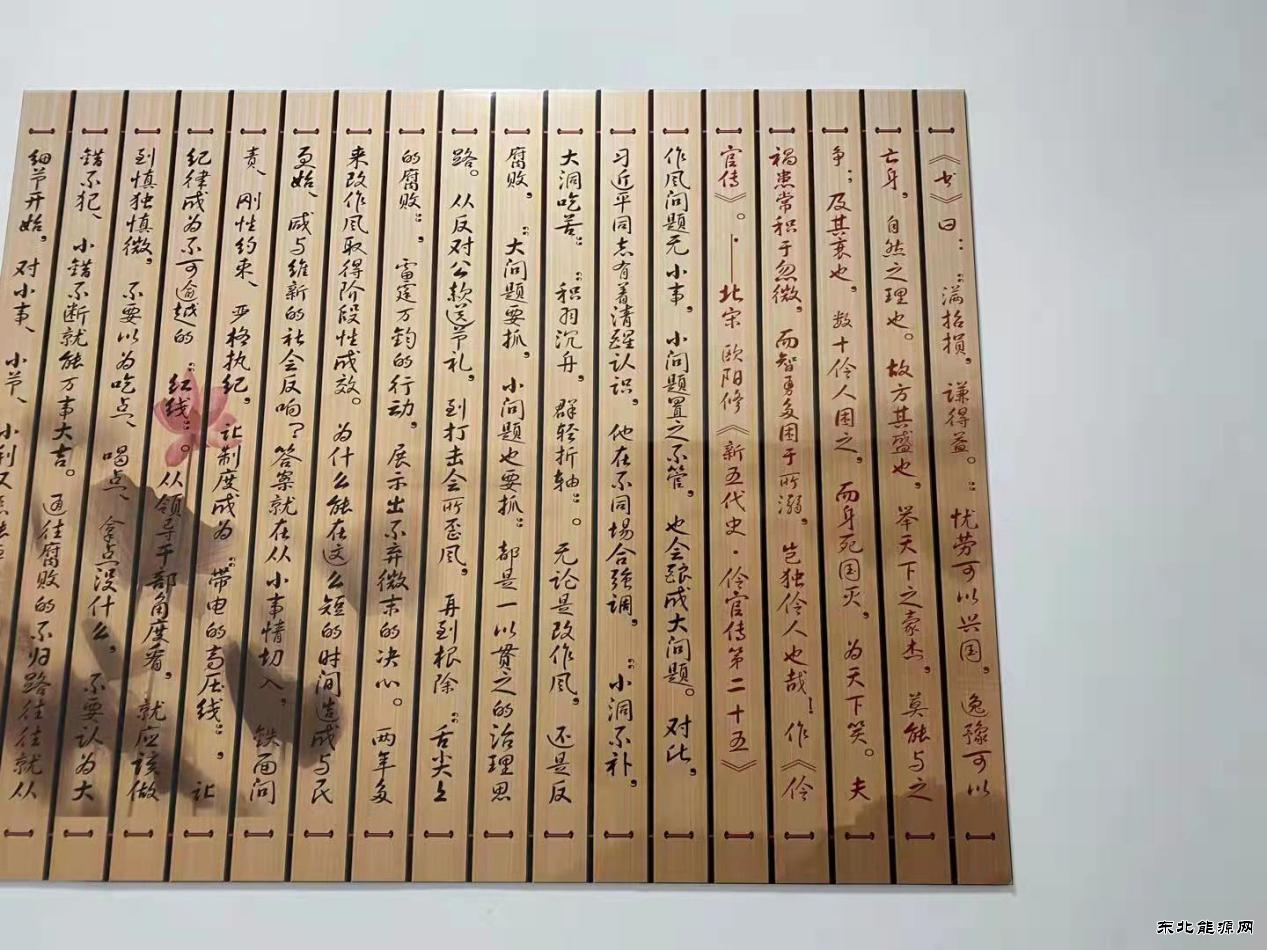 《书》曰：“满招损，谦得益。”忧劳可以兴国，逸豫可以
亡身，自然之理也。故方其盛也，举天下之豪杰，莫能与之
争；及其衰也，数十伶人困之，而身死国灭，为天下笑。夫
祸患常积于忽微，而智勇多困于所溺，岂独伶人也哉！作《伶
官传》。卜——北宋 欧阳修《新五代史·伶官传第二十五》
作风问题无小事，小问题置之不管，也会酿成大问题。对此，
习近平同志有着清醒认识，他在不同场合强调，“小洞不补，
大洞吃苦”“积羽沉舟，群轻折轴”。无论是改作风，还是反
腐败，“大问题要抓，小问题也要抓”都是一以贯之的治理思
路。从反对公款送节礼，到打击会所歪风，再到根除“舌尖上
的腐败”，雷霆万钧的行动，展示出不弃微末的决心。两年多
来改作风取得阶段性成效。为什么能在这么短的时间造成与民
更始、咸与维新的社会反响？答案就在从小事情切入，铁面问
责、刚性约束、严格执纪，让制度成为“带电的高压线”，让
纪律成为不可逾越的“红线”。从领导干部角度看，就应该做
到慎独慎微，不要以为吃点、喝点、拿点没什么，不要认为大
错不犯、小错不断就能万事大吉。通往腐败的不归路往往就从
细节开始，对小事、小节、
小利
东北能源网